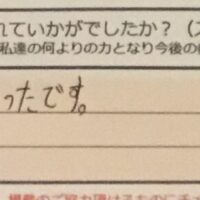 れていかがでしたか？
私達の何よりの力となり今後の
ったです。